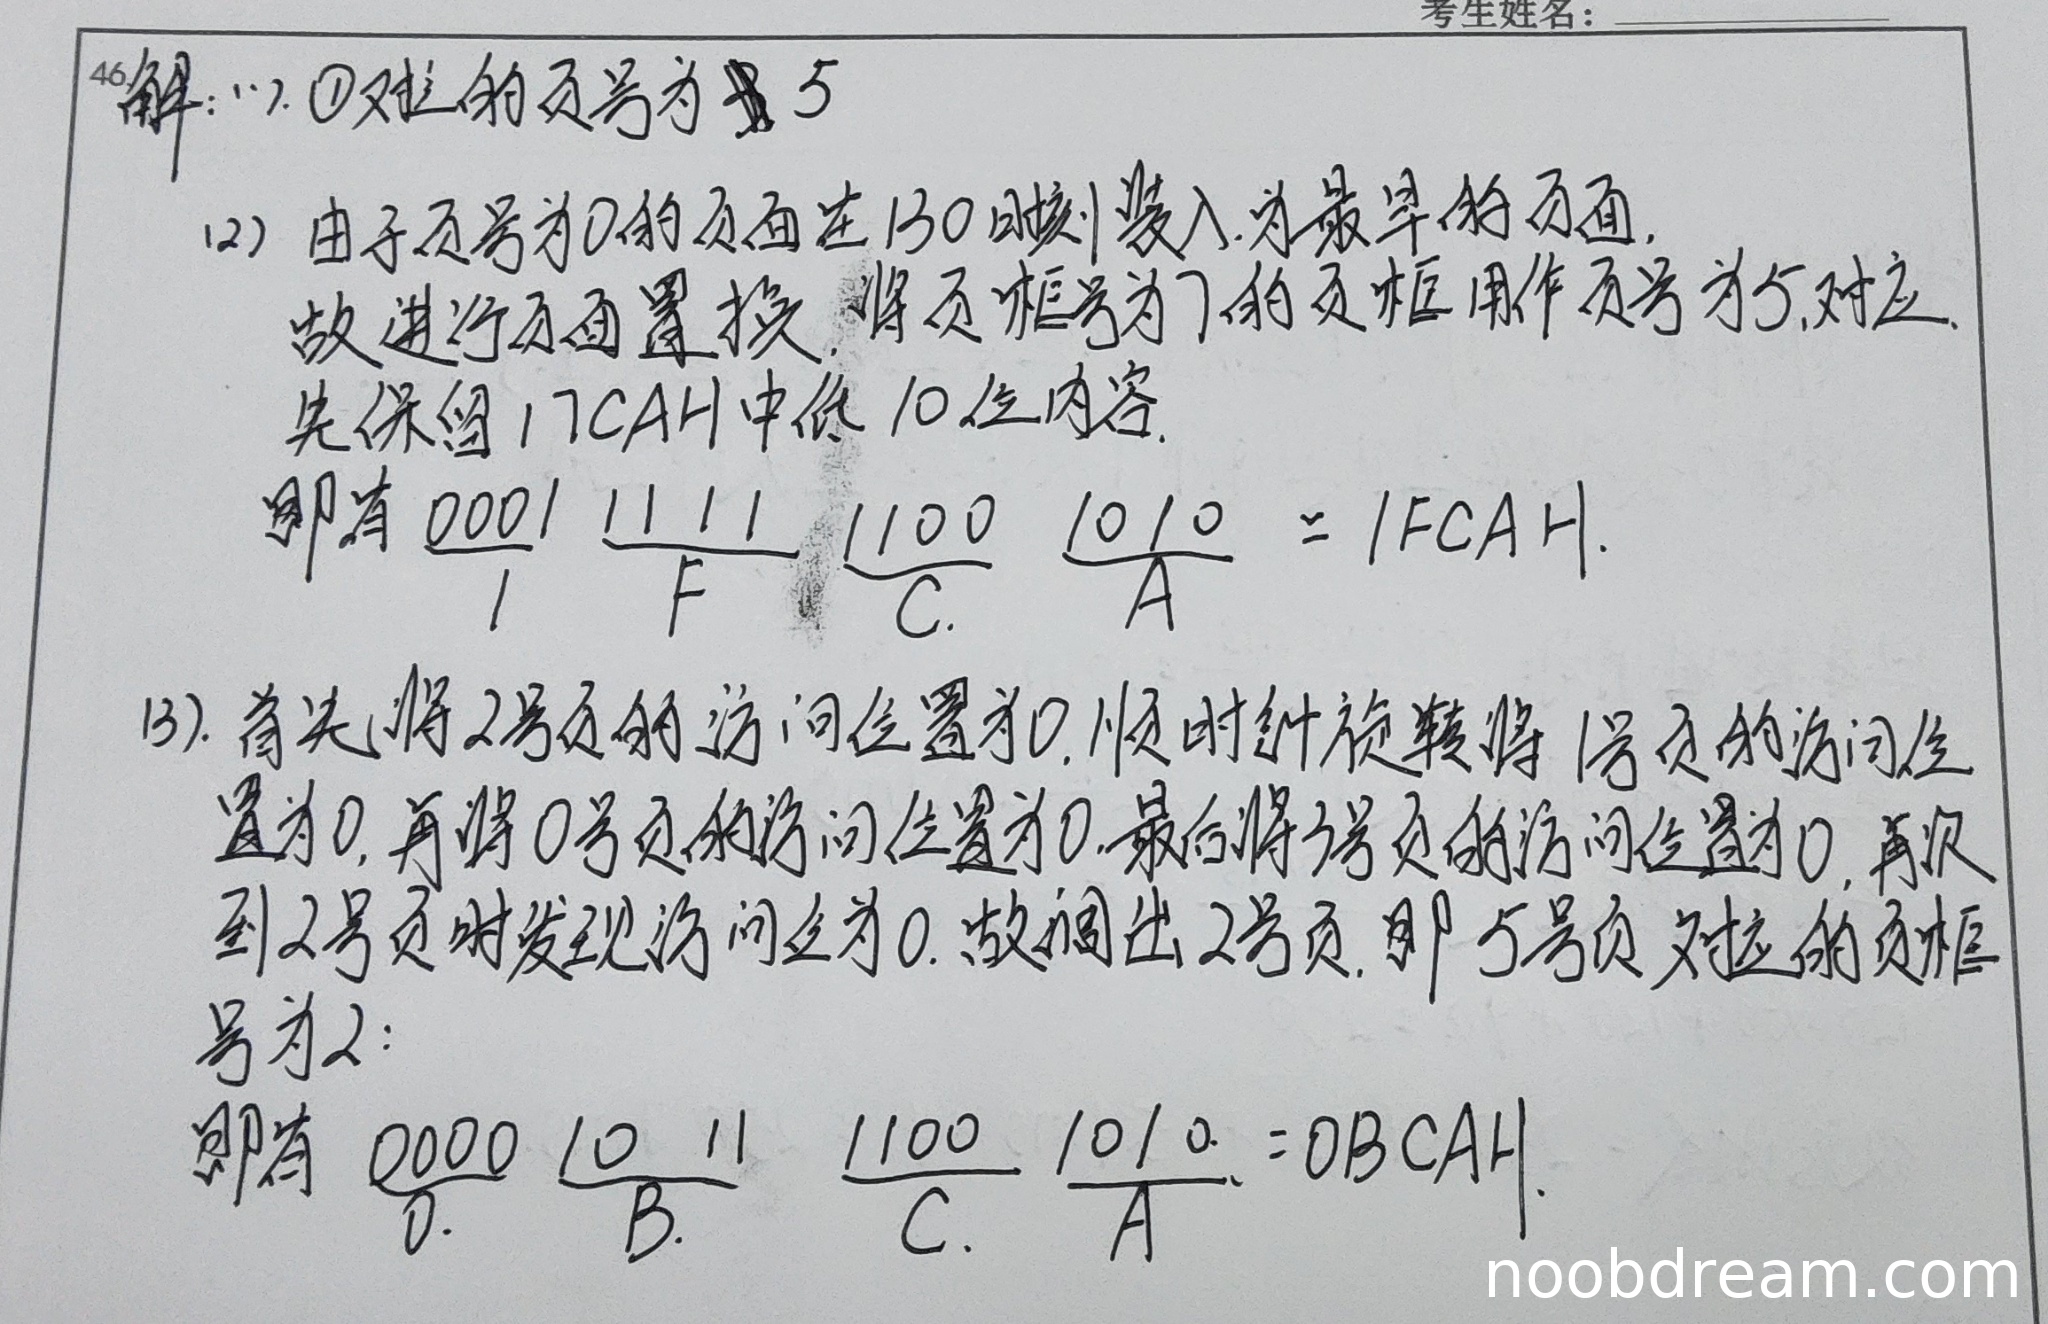 考生姓名：
46.
解：(1). ①对应的页号为 5
(2) 由于页号为0的页面在130时刻装入.为最早的页面.
故进行页面置换.将页框号为7的页框用作页号为5.对应.
先保留17CAH中低10位内容.
即有 0001 1111 1100 1010 = 1FCAH.
1 F C. A
(3). 首先将2号页的访问位置为0.顺时针旋转将1号页的访问位
置为0.再将0号页的访问位置为0.最后将3号页的访问位置为0.再次
到2号页时发现访问位为0.故调出2号页.即5号页对应的页框
号为2:
即有 0000 1011 1100 1010. =0BCAH.
0. B. C. A
noobdream.com